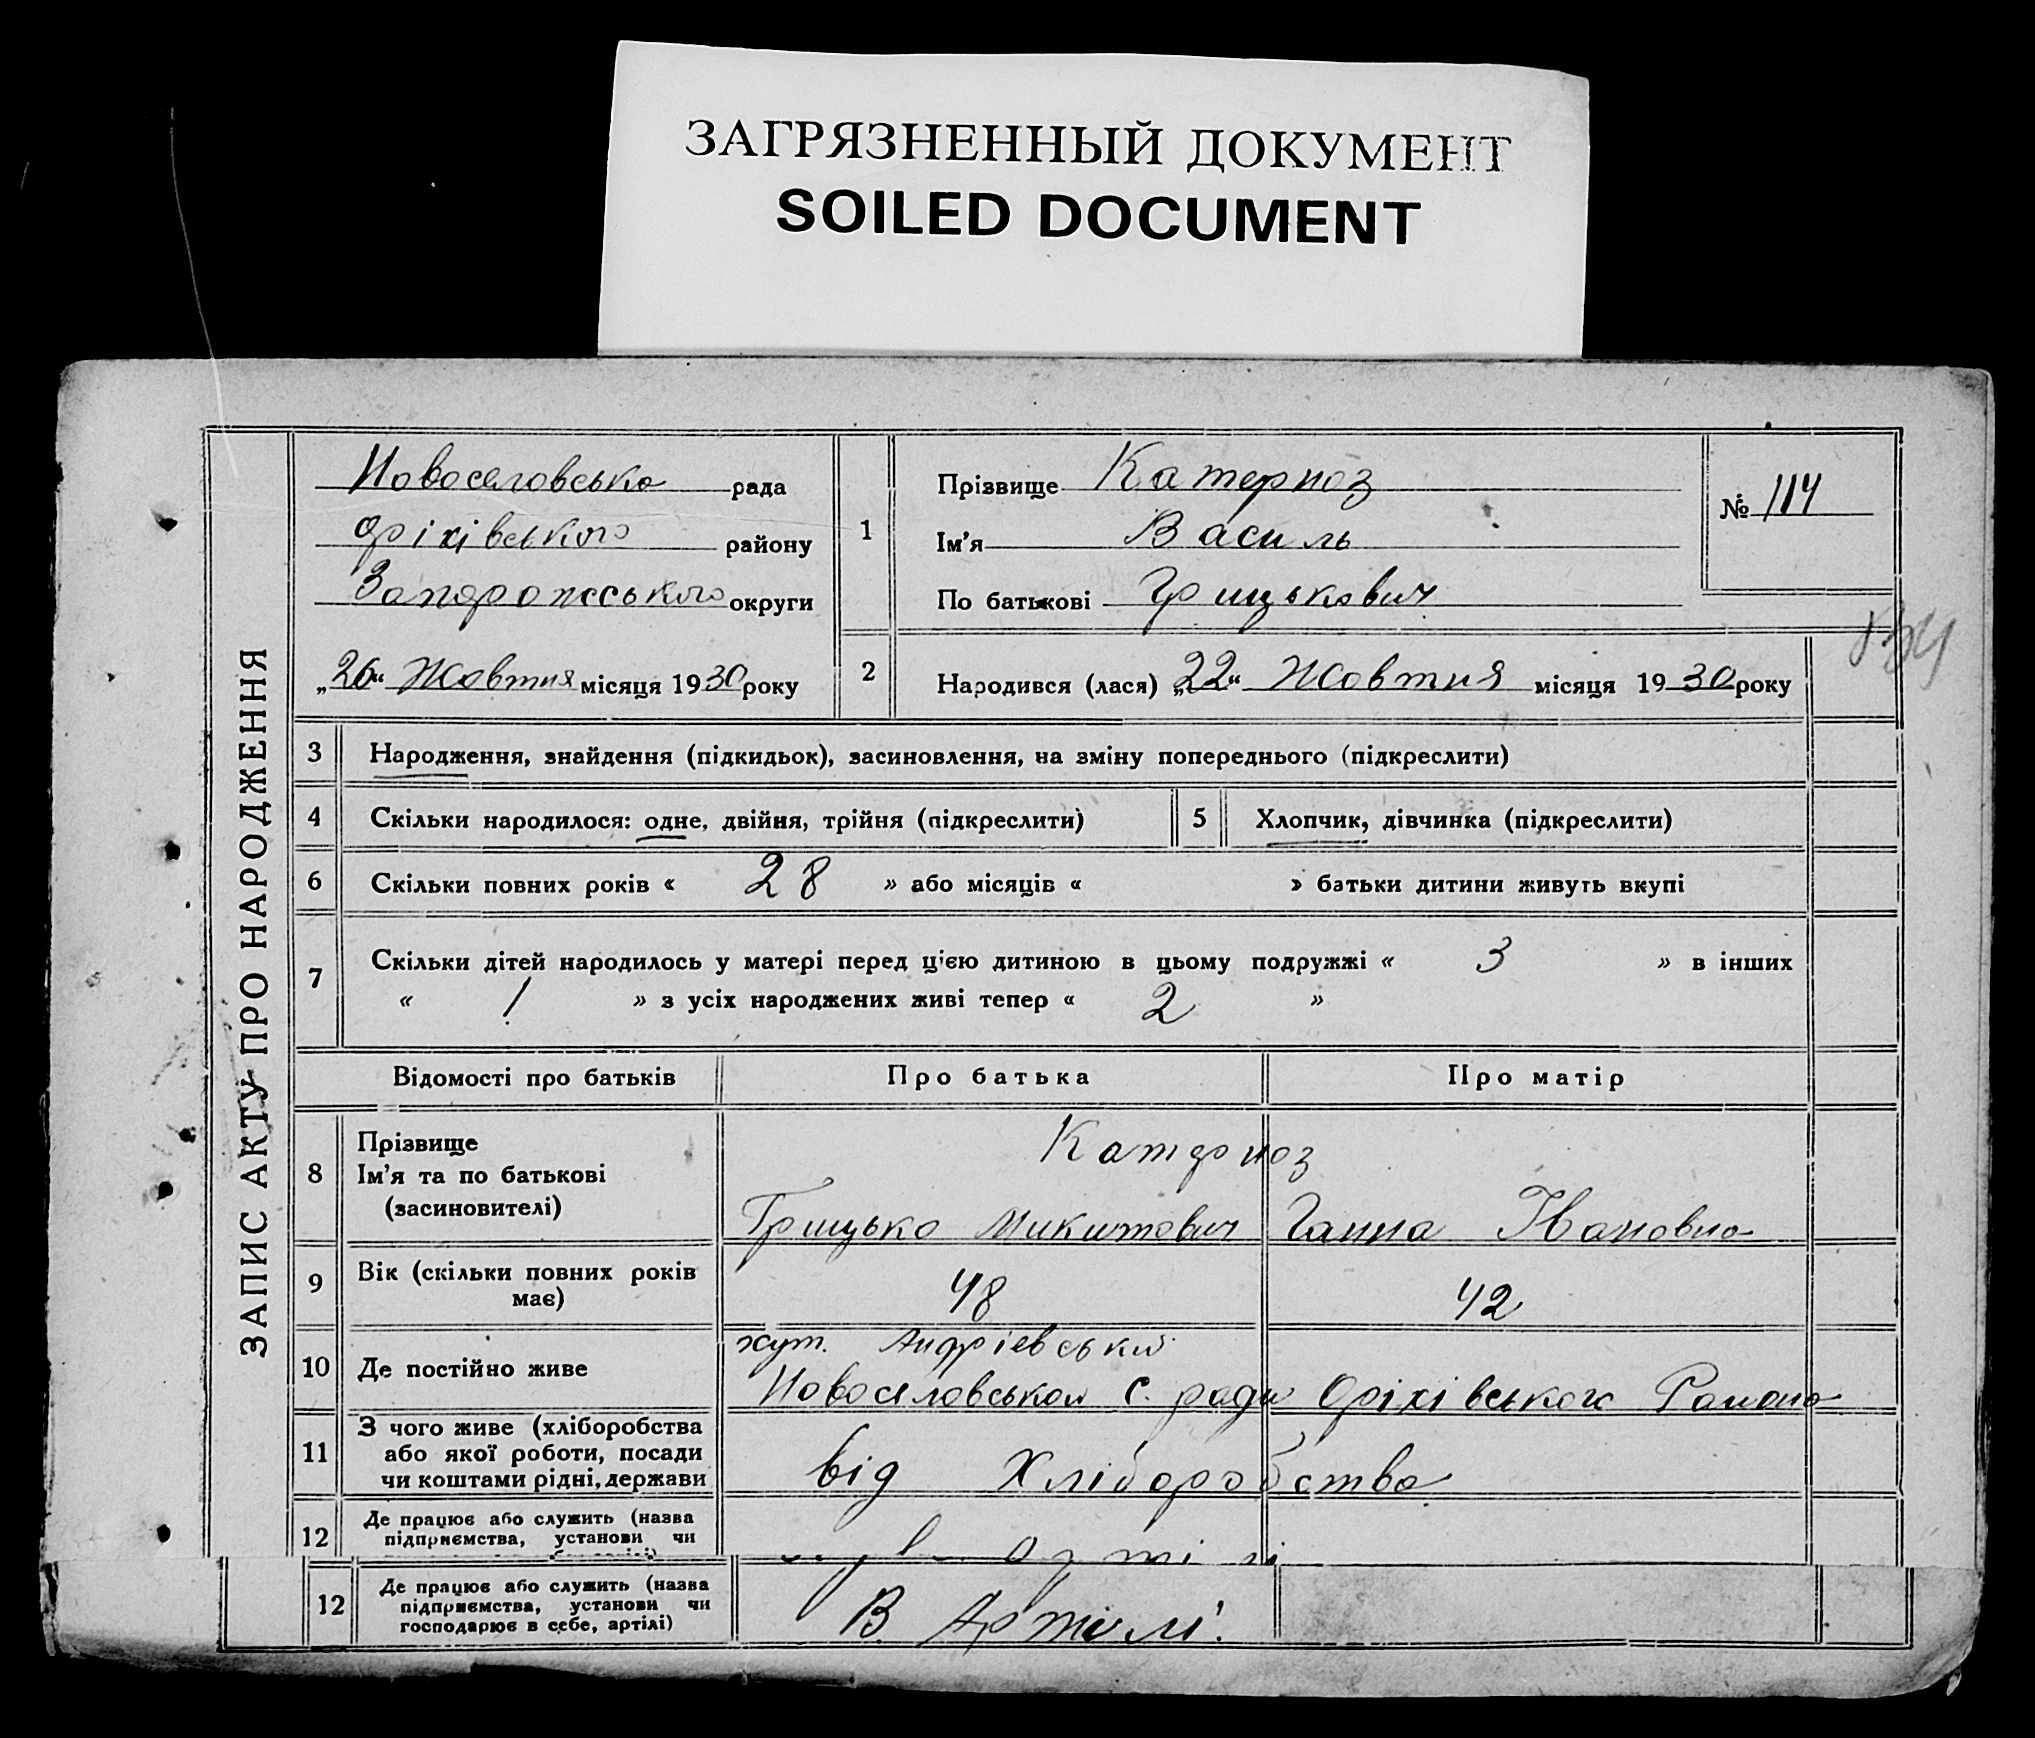 ЗАГРЯЗНЕННЫЙ ДОКУМЕНТ
SOILED DOCUMENT
ЗАПИС АКТУ ПРО НАРОДЖЕННЯ
Новоселовська рада
Оріхівського району
Запорожського округи
„26“ Жовтня місяця 1930 року
1
Прізвище Катерноз
Ім'я Василь
По батькові Грицькович
№ 114
2
Народився (лася) „22“ Жовтня місяця 1930 року
3 Народження, знайдення (підкидьок), засиновлення, на зміну попереднього (підкреслити)
4 Скільки народилося: одне, двійня, трійня (підкреслити) 5 Хлопчик, дівчинка (підкреслити)
6 Скільки повних років « 28 » або місяців « » батьки дитини живуть вкупі
7 Скільки дітей народилось у матері перед ц'єю дитиною в цьому подружжі « 3 » в інших
« 1 » з усіх народжених живі тепер « 2 »
Відомості про батьків Про батька Про матір
8 Прізвище
Ім'я та по батькові
(засиновителі)
Катерноз
Грицько Микитович Ганна Івановна
9 Вік (скільки повних років
має)
48 42
10 Де постійно живе
хут. Андрієвський
Новоселовськой с. ради Оріхівського Района
11 З чого живе (хліборобства
або якої роботи, посади
чи коштами рідні, держави
від Хліборобства
12 Де працює або служить (назва
підприємства, установи чи
12 Де працює або служить (назва
підприємства, установи чи
господарює в себе, артілі)
В Артилі.